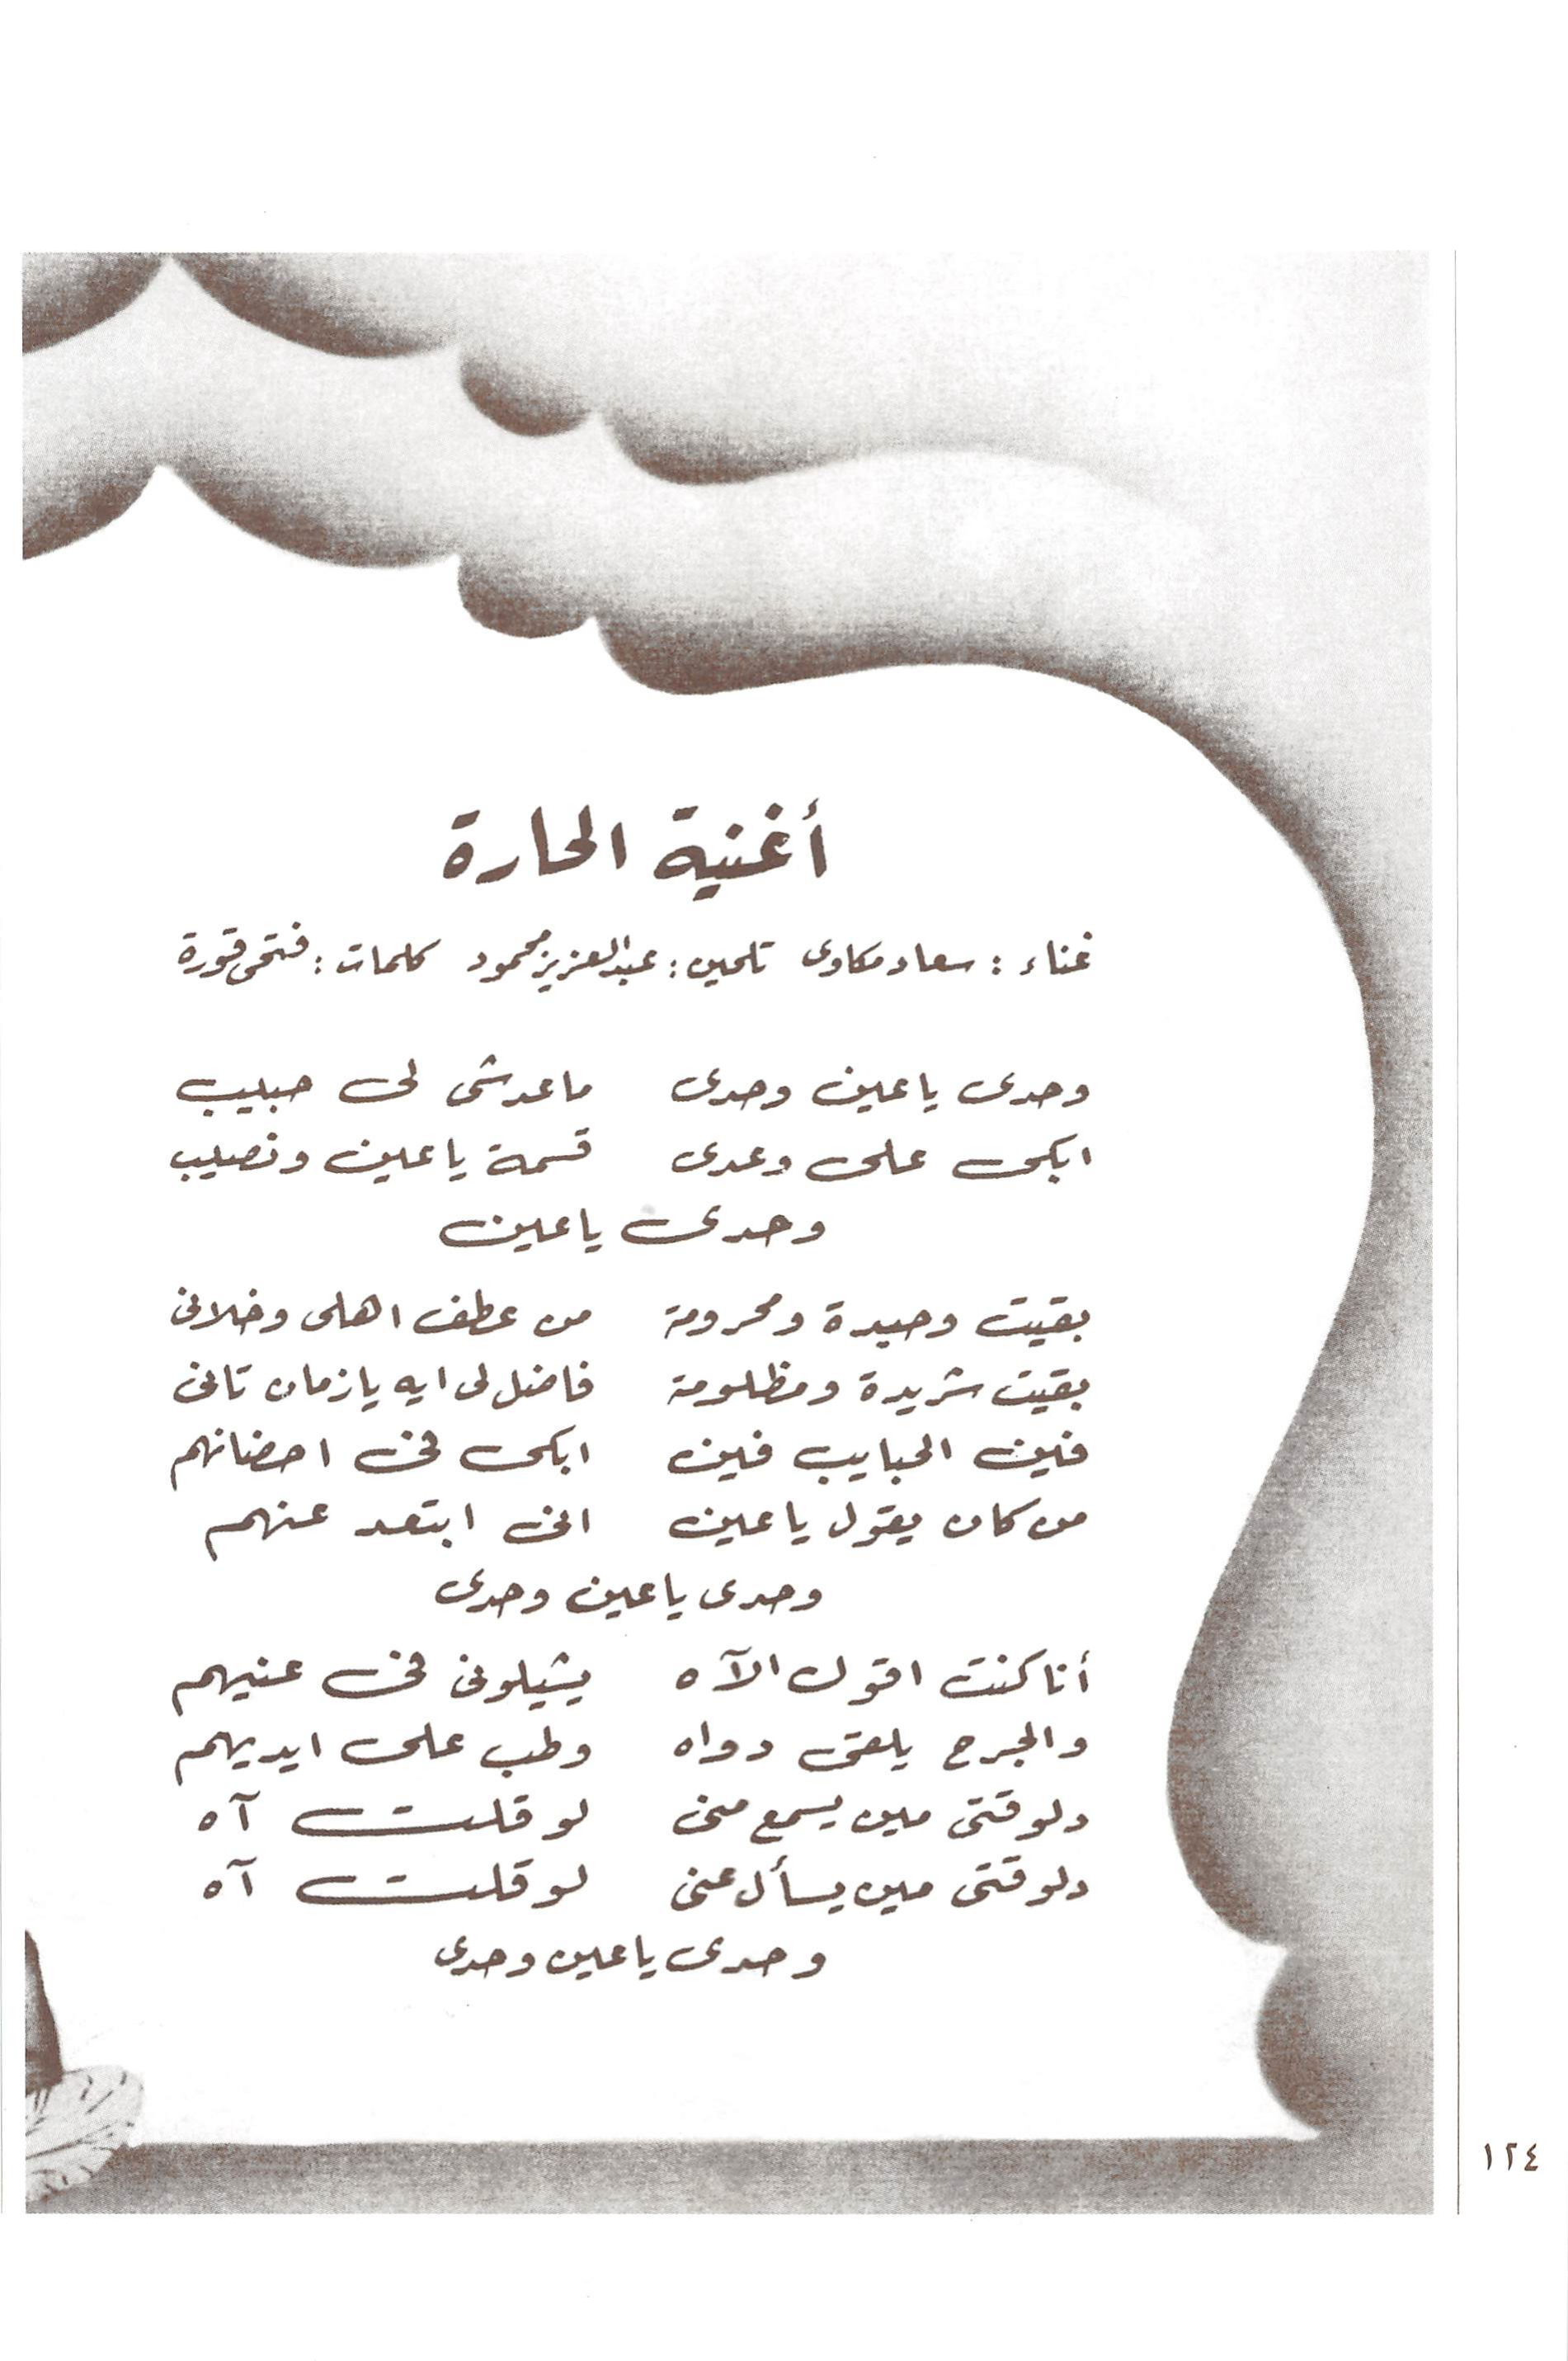 أغنية الحارة
غناء : سعاد مكاوى تلحين : عبد العزيز محمود كلمات : فتحى قورة
وحدى يا عين وحدى ماعدشى لى حبيب
ابكى على وعدى قسمة يا عين ونصيب
وحدى يا عين
بقيت وحيدة ومحرومة من عطف اهلى وخلانى
بقيت شريدة ومظلومة فاضل لى ايه يا زمان تانى
فين الحبايب فين ابكى فى احضانهم
من كان يقول يا عين انى ابتعد عنهم
وحدى يا عين وحدى
أنا كنت اقول الآه يشيلونى فى عنيهم
والجرح يلقى دواه وطب على ايديهم
دلوقتى مين يسمع منى لو قلت آه
دلوقتى مين يسأل عنى لو قلت آه
وحدى يا عين وحدى
١٢٤